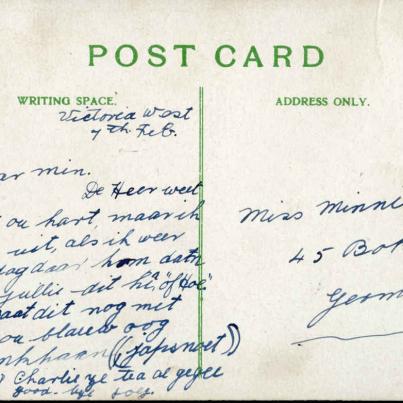 POST CARD
WRITING SPACE.
ADDRESS ONLY.
Victoria West
7th. Feb.
ar min.
De Heer weet
ou hart, maar ik
uit, als ik weer
daar kom dat
jullie dit
aat dit nog met
ou blauw oog
nkhaan ((japsnoet))
Charlie ye tea al gegee
Good-bye
Miss Minni
45 Bo
Germ